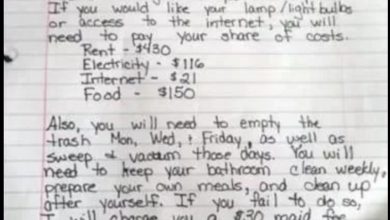 If you would like your lamp/lightbulbs
or access to the internet, you will
need to pay your share of costs.
Rent - $430
Electricity - $116
Internet - $21
Food - $150
Also, you will need to empty the
trash Mon, Wed, & Friday, as well as
sweep & vacuum those days. You will
need to keep your bathroom clean weekly,
prepare your own meals, and clean up
after yourself. If you fail to do so,
I will charge you a $30 maid fee